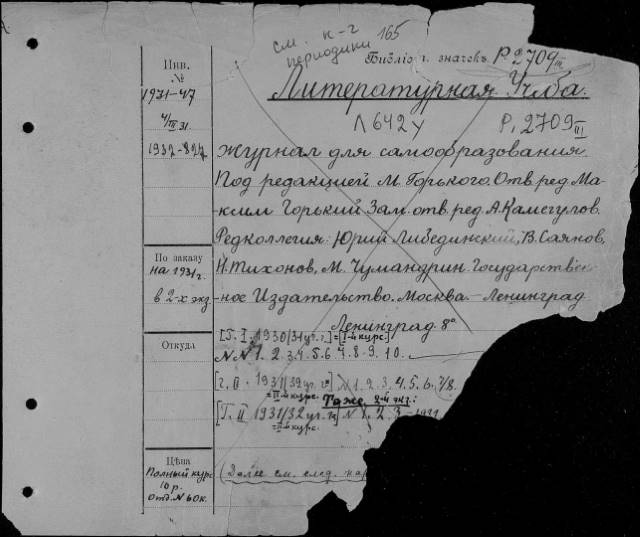 см. к-г 165
периодики
Библіот. значекъ Р. 2709 III
Литературная Учеба.
Л 642 у Р. 2709 III
Журнал для самообразования.
Под редакцией М. Горького. Отв. ред. Ма-
ксим Горький Зам. отв. ред. А. Камегулов.
Редколлегия: Юрий Либединский, В. Саянов,
Н. Тихонов, М. Чумандрин. Государствен-
ное Издательство. Москва – Ленинград
Ленинград 8°
[Г. I. 1930/31 уч. г.] = [I-й курс.]
NN 1. 2. 3. 4. 5. 6. 7. 8. 9. 10.
[г. II. 1931/32 уч. г.] N 1. 2. 3. 4. 5. 6. 7/8.
= II-й курс. Тоже 2-й экз.:
[Г. II 1931/32 уч. г.] N 1. 2. 3
= II-й курс.
(Далее см. след. кар
Инв.
№
1931-47
4/III 31.
1932-827
По заказу
на 1931 г.
в 2-х экз.
Откуда
Цѣна
Полный курс
10 р.
Отд. N 60 к.